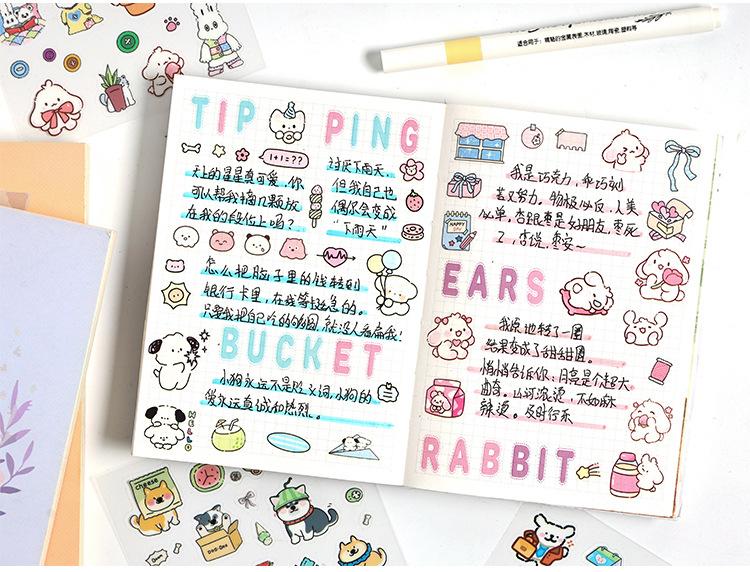 适合用于:精贴的金属表面,木材,玻璃,陶瓷,塑料等
TIP PING
1+1=??
天上的星星真可爱,你
可以帮我摘几颗放
在我的段位上吗?
讨厌下雨天,
但我自己也
偶尔会变成
“下雨天”
怎么把脑子里的钱转到
银行卡里,在线等挺急的。
只要我把自己吃的够圆,就没人看扁我!
BUCKET
小狗永远不是贬义词,小狗的
爱永远真诚和热烈。
HELLO
我是巧克力,乖巧刻
苦又努力。物极必反,人美
必单,杏跟枣是好朋友,枣死
了,杏说,枣安~
HAPPY
DAY
EARS
我原地转了一圈
结果变成了甜甜圈。
悄悄告诉你:月亮是个超大
曲奇。山河滚烫,不如麻
辣烫。及时行乐
RABBIT
cheese
DOG-ONE